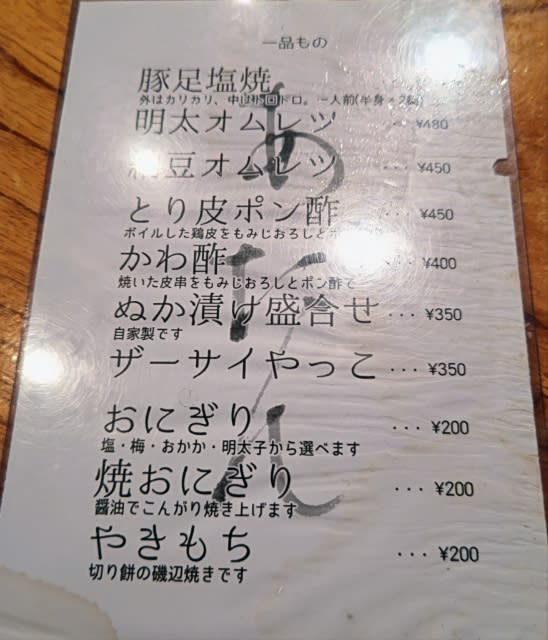 一品もの
豚足塩焼
外はカリカリ、中はトロトロ。一人前(半身×2個)
明太オムレツ ・・・ ¥480
豆オムレツ ・・・ ¥450
とり皮ポン酢 ・・・ ¥450
ボイルした鶏皮をもみじおろしとポ
かわ酢 ・・・ ¥400
焼いた皮串をもみじおろしとポン酢で
ぬか漬け盛合せ ・・・ ¥350
自家製です
ザーサイやっこ ・・・ ¥350
おにぎり ・・・ ¥200
塩・梅・おかか・明太子から選べます
焼おにぎり ・・・ ¥200
醤油でこんがり焼き上げます
やきもち ・・・ ¥200
切り餅の磯辺焼きです